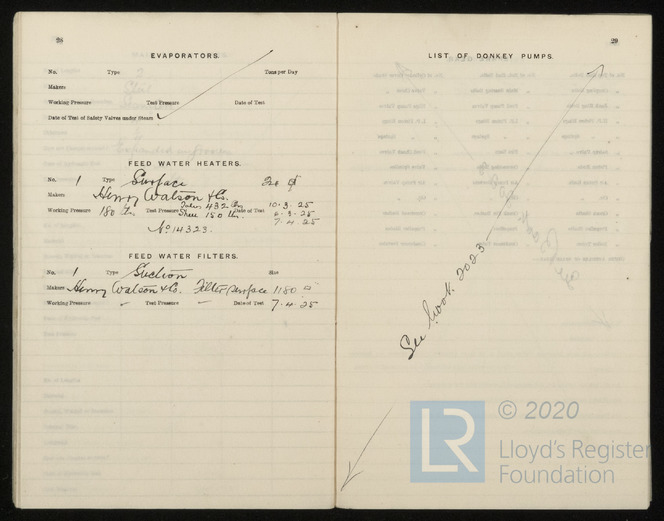 28
EVAPORATORS.
No. Type Tons per Day
Makers
Working Pressure Test Pressure Date of Test
Date of Test of Safety Valves under Steam
FEED WATER HEATERS.
No. 1 Type Surface
Makers Henry Watson & Co.
Working Pressure 180 lbs. Test Pressure Tubes 432 lbs Shell 150 lbs. Date of Test 10.3.25 6.3.25 7.4.25
No 14323.
FEED WATER FILTERS.
No. 1 Type Suction Size
Makers Henry Watson & Co. Filter Surface 1180 □"
Working Pressure — Test Pressure — Date of Test 7.4.25
29
LIST OF DONKEY PUMPS.
See book 2023
LR © 2020
Lloyd's Register
Foundation